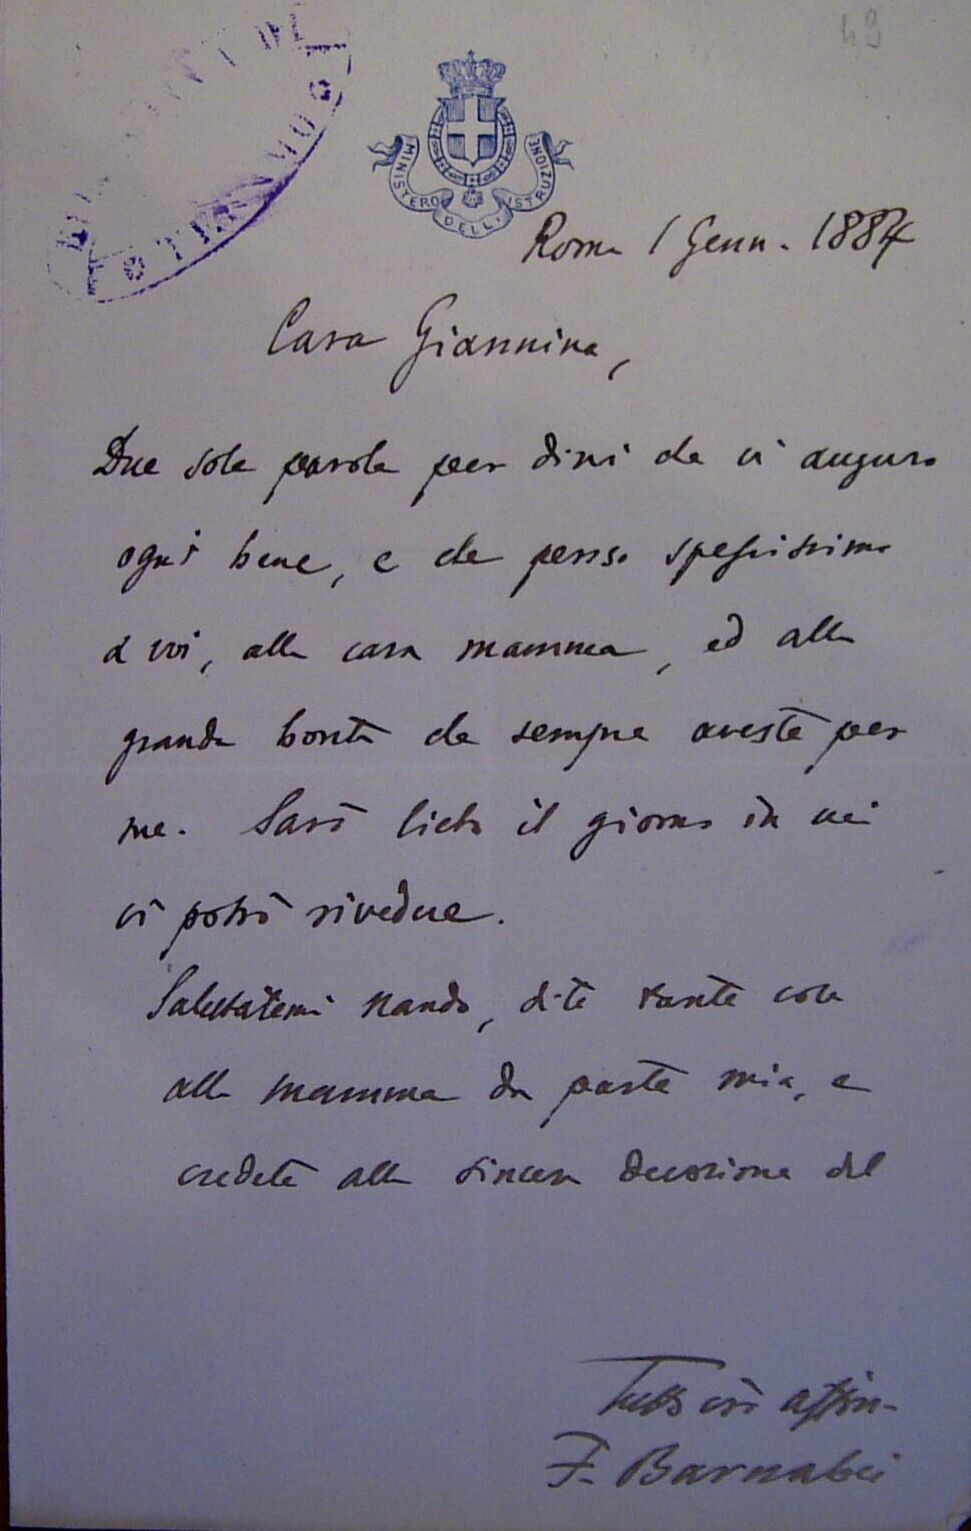 49
MINISTERO DELL'ISTRUZIONE
TERAMO
Roma 1 Genn. 1884
Cara Giannina,
Due sole parole per dirvi che vi auguro
ogni bene, e che penso spessissimo
a voi, alla cara mamma, ed alla
grande bontà che sempre aveste per
me. Sarò lieto il giorno in cui
vi potrò rivedere.
Salutatemi Nando, dite tante cose
alla mamma da parte mia, e
credete alla sincera devozione del
Tutto vro affmo
F. Barnabei